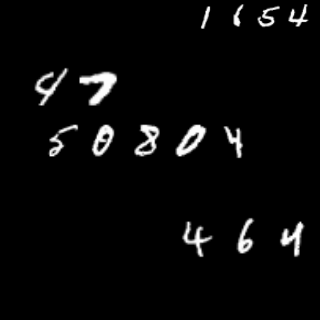 1654
47
50804
464